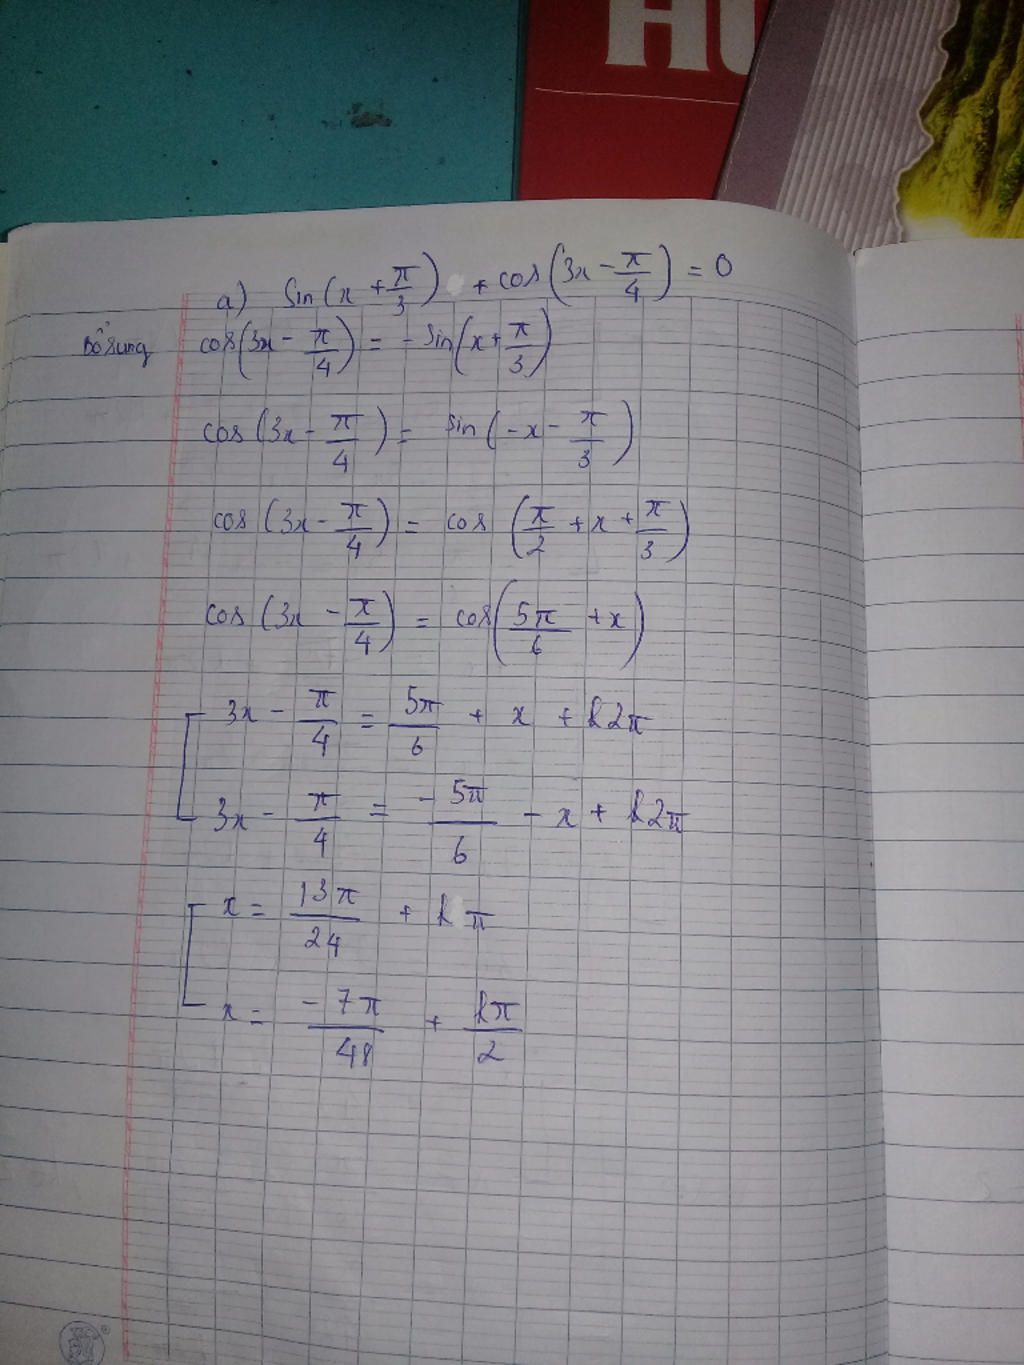 HU
a) Sin(x + π/3) + cos(3x - π/4) = 0
Bổ sung cos(3x - π/4) = - sin(x + π/3)
cos(3x - π/4) = sin(-x - π/3)
cos(3x - π/4) = cos(π/2 + x + π/3)
cos(3x - π/4) = cos(5π/6 + x)
3x - π/4 = 5π/6 + x + k2π
3x - π/4 = -5π/6 - x + k2π
x = 13π/24 + kπ
x = -7π/48 + kπ/2